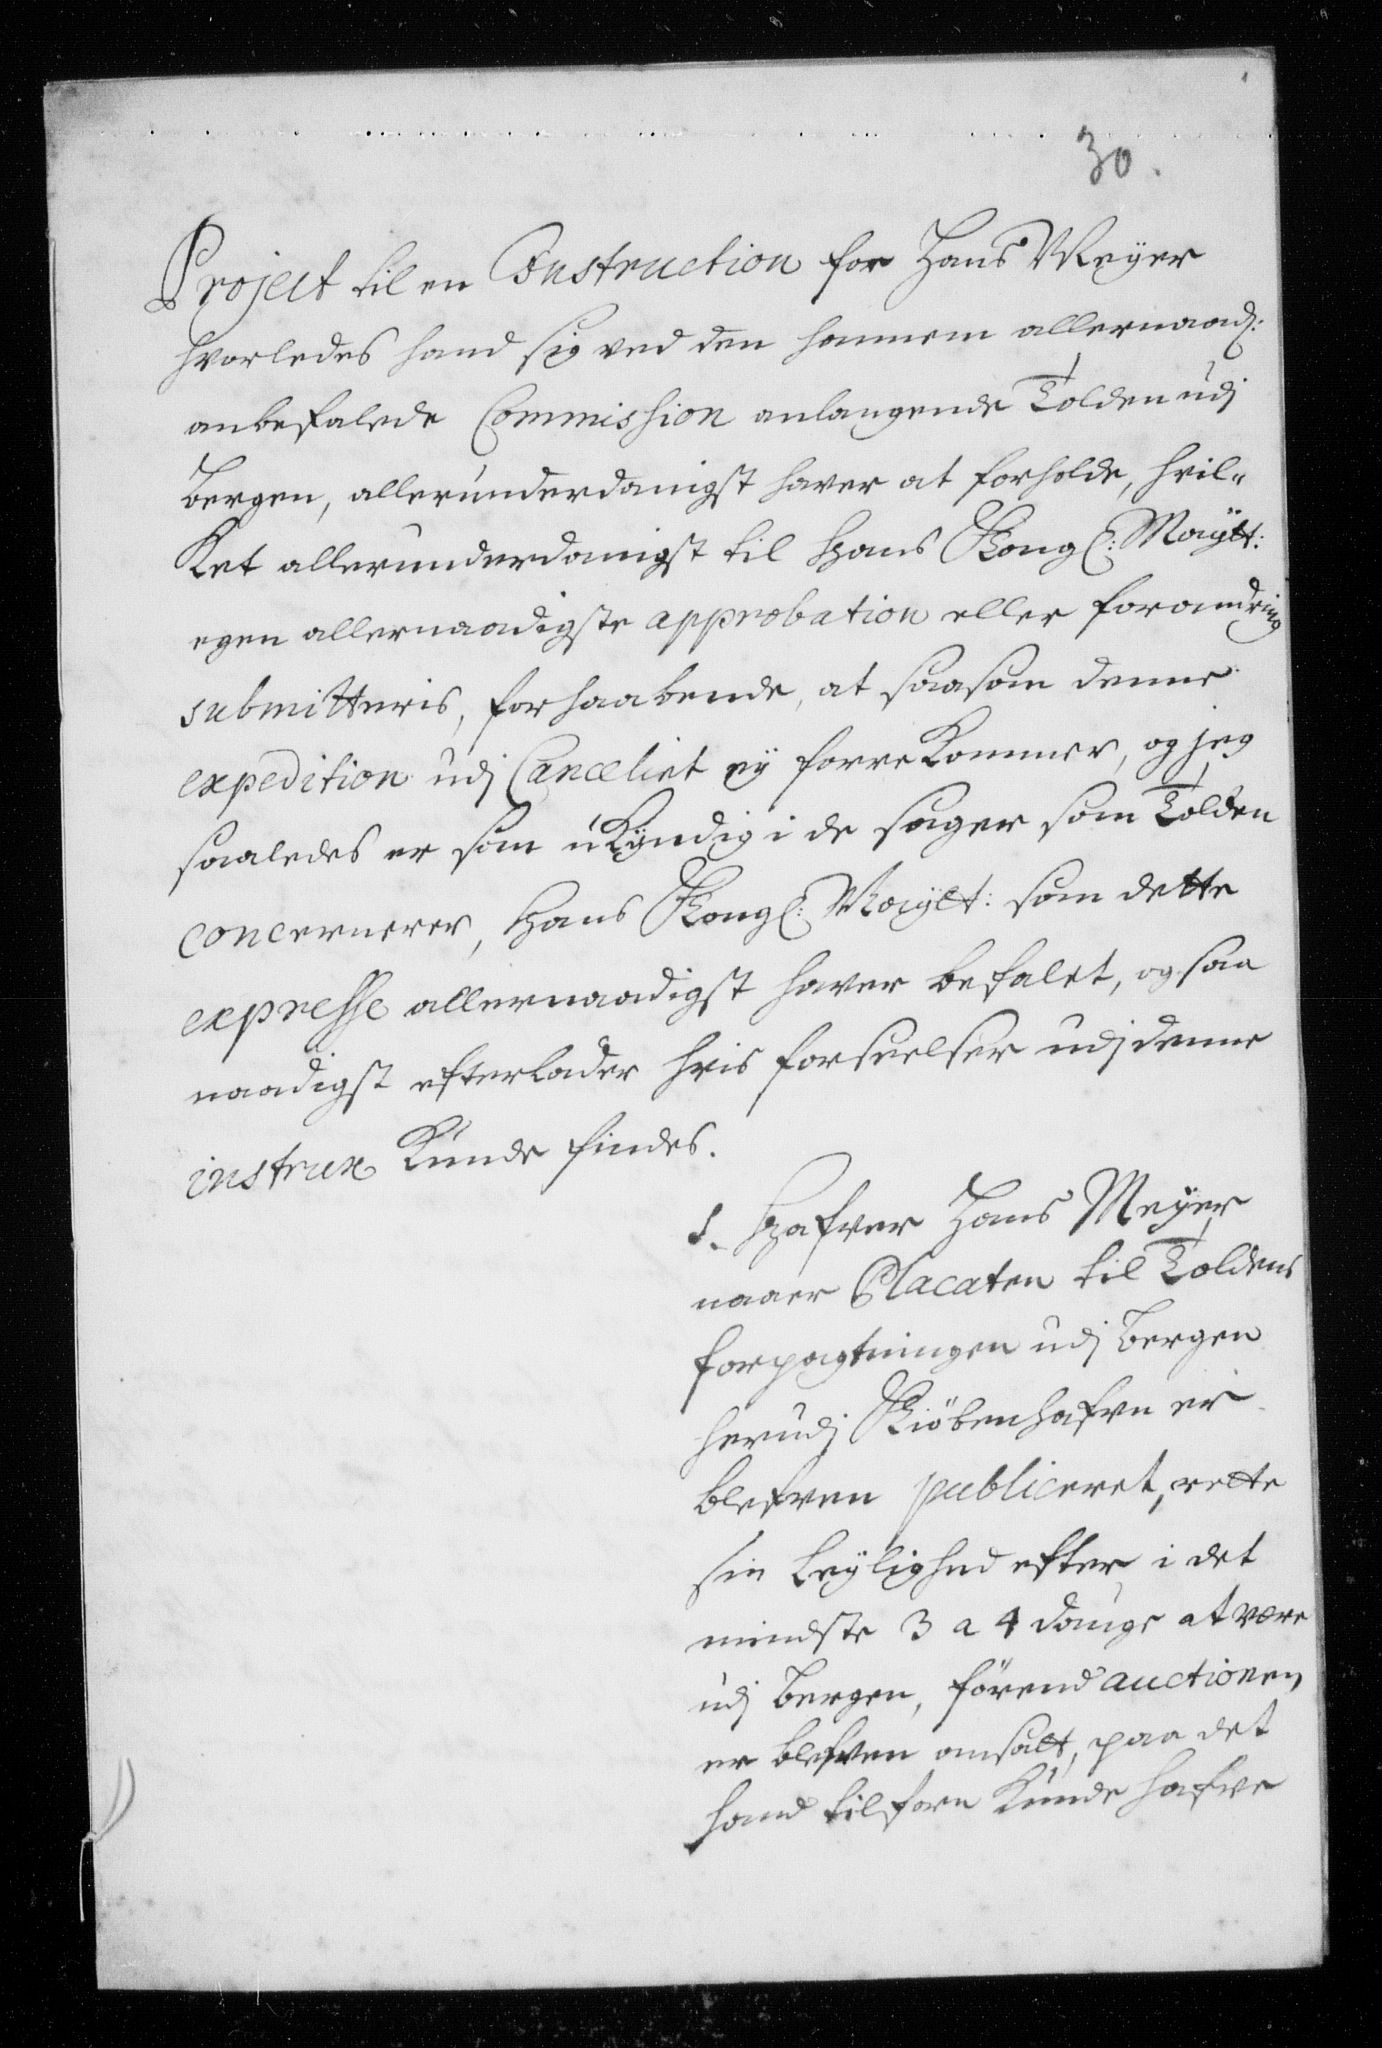 30.
Project til en Construction for Hans Meÿer
hvorledes hand sig ved den hannem allernaad:
anbefalede Commission anlangende Tolden udj
Bergen, allerunderdanigst haver at forholde, hvil-
Ket allerunderdanigst til Hans Kongl: Maÿtt:
egen allernaadigste approbation eller forandring
submitteris, forhaabende, at saasom denne
expedition udj Cancelliet eÿ forre Kommer, og jeg
saaledes er som uKÿndig i de sager som Tolden
concernerer, Hans Kongl: Maÿtt: som dette
expresse allernaadigst haver befalet, og saa
naadigst efterlader hvis forseelser udj denne
instrux Kunde findes.
1. Hafver Hans Meÿer
naaer Placaten til Toldens
forpagtningen udj Bergen
herudj Kiöbenhafvn er
blefven publiceret, rette
sin Leÿlighed efter i det
mindste 3 a 4 dauge at være
udj Bergen, förend auctionen
er blefven ansatt, paa det
hand tilforn Kunde hafve